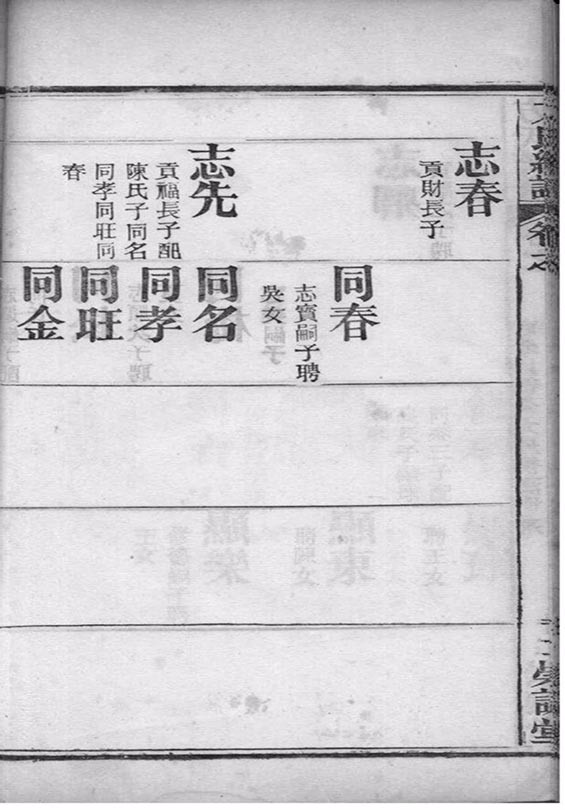 志春
貢財長子
志先
貢福長子配
陳氏子同名
同孝同旺同
春
同春
志寳嗣子聘
吳女
同名
同孝
同旺
同金